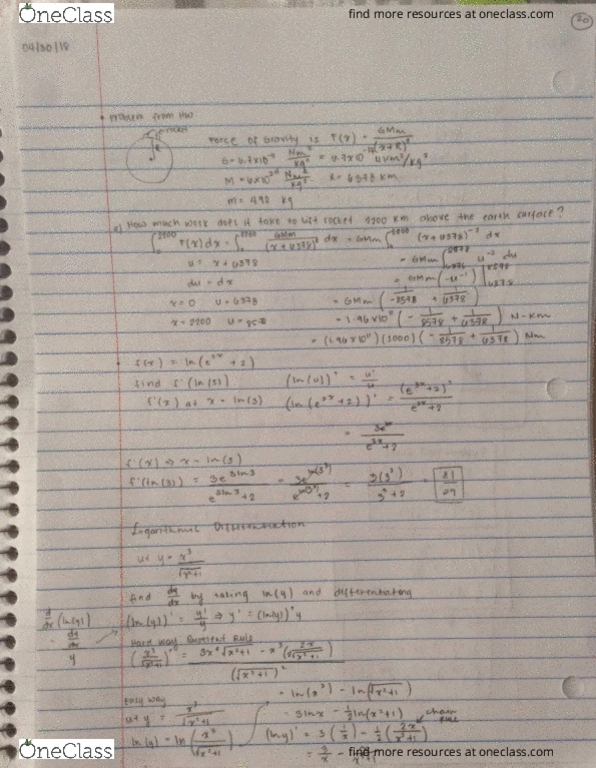 OneClass
find more resources at oneclass.com
20
04/30/18
• Problem from HW
rocket
Force of Gravity is F(x) = GMm/(x+R)²
R = 6378 km
m = 492 kg
a) How much work does it take to lift rocket 2200 km above the earth surface?
∫₀²²⁰⁰ F(x) dx = ∫₀²²⁰⁰ GMm/(x+6378)² dx = GMm ∫₀²²⁰⁰ (x+6378)⁻² dx
u = x + 6378 = GMm ∫₆₃₇₈⁸⁵⁷⁸ u⁻² du
du = dx = GMm (-u⁻¹) |₆₃₇₈⁸⁵⁷⁸
x=0 u=6378 = GMm (-1/8578 + 1/6378)
x=2200 u=8578 = 1.96x10¹¹ (-1/8578 + 1/6378) N-Km
= (1.96x10¹¹)(1000)(-1/8578 + 1/6378) Nm
• f(x) = ln(e³ˣ + 2)
find f'(ln(3)) (ln(u))' = u'/u
f'(x) at x = ln(3) (ln(e³ˣ+2))' = (e³ˣ+2)'/(e³ˣ+2)
= 3e³ˣ/(e³ˣ+2)
f'(x) ⇒ x = ln(3)
f'(ln(3)) = 3e^(3ln3)/(e^(3ln3)+2) = 3e^(ln(3³))/(e^(ln(3³))+2) = 3(3³)/(3³+2) = 81/29
Logarithmic Differentiation
let y = x³/√(x²+1)
find dy/dx by taking ln(y) and differentiating
d/dx (ln(y)) = (dy/dx)/y
(ln(y))' = y'/y ⇒ y' = (ln(y))' y
Hard way Quotient Rule
(x³/√(x²+1))' = (3x²√(x²+1) - x³(2x/2√(x²+1)))/(√(x²+1))²
Easy way
let y = x³/√(x²+1)
ln(y) = ln(x³/√(x²+1))
= ln(x³) - ln(√(x²+1))
= 3lnx - ½ln(x²+1)
chain rule
(lny)' = 3(1/x) - ½(2x/(x²+1))
OneClass
find more resources at oneclass.com